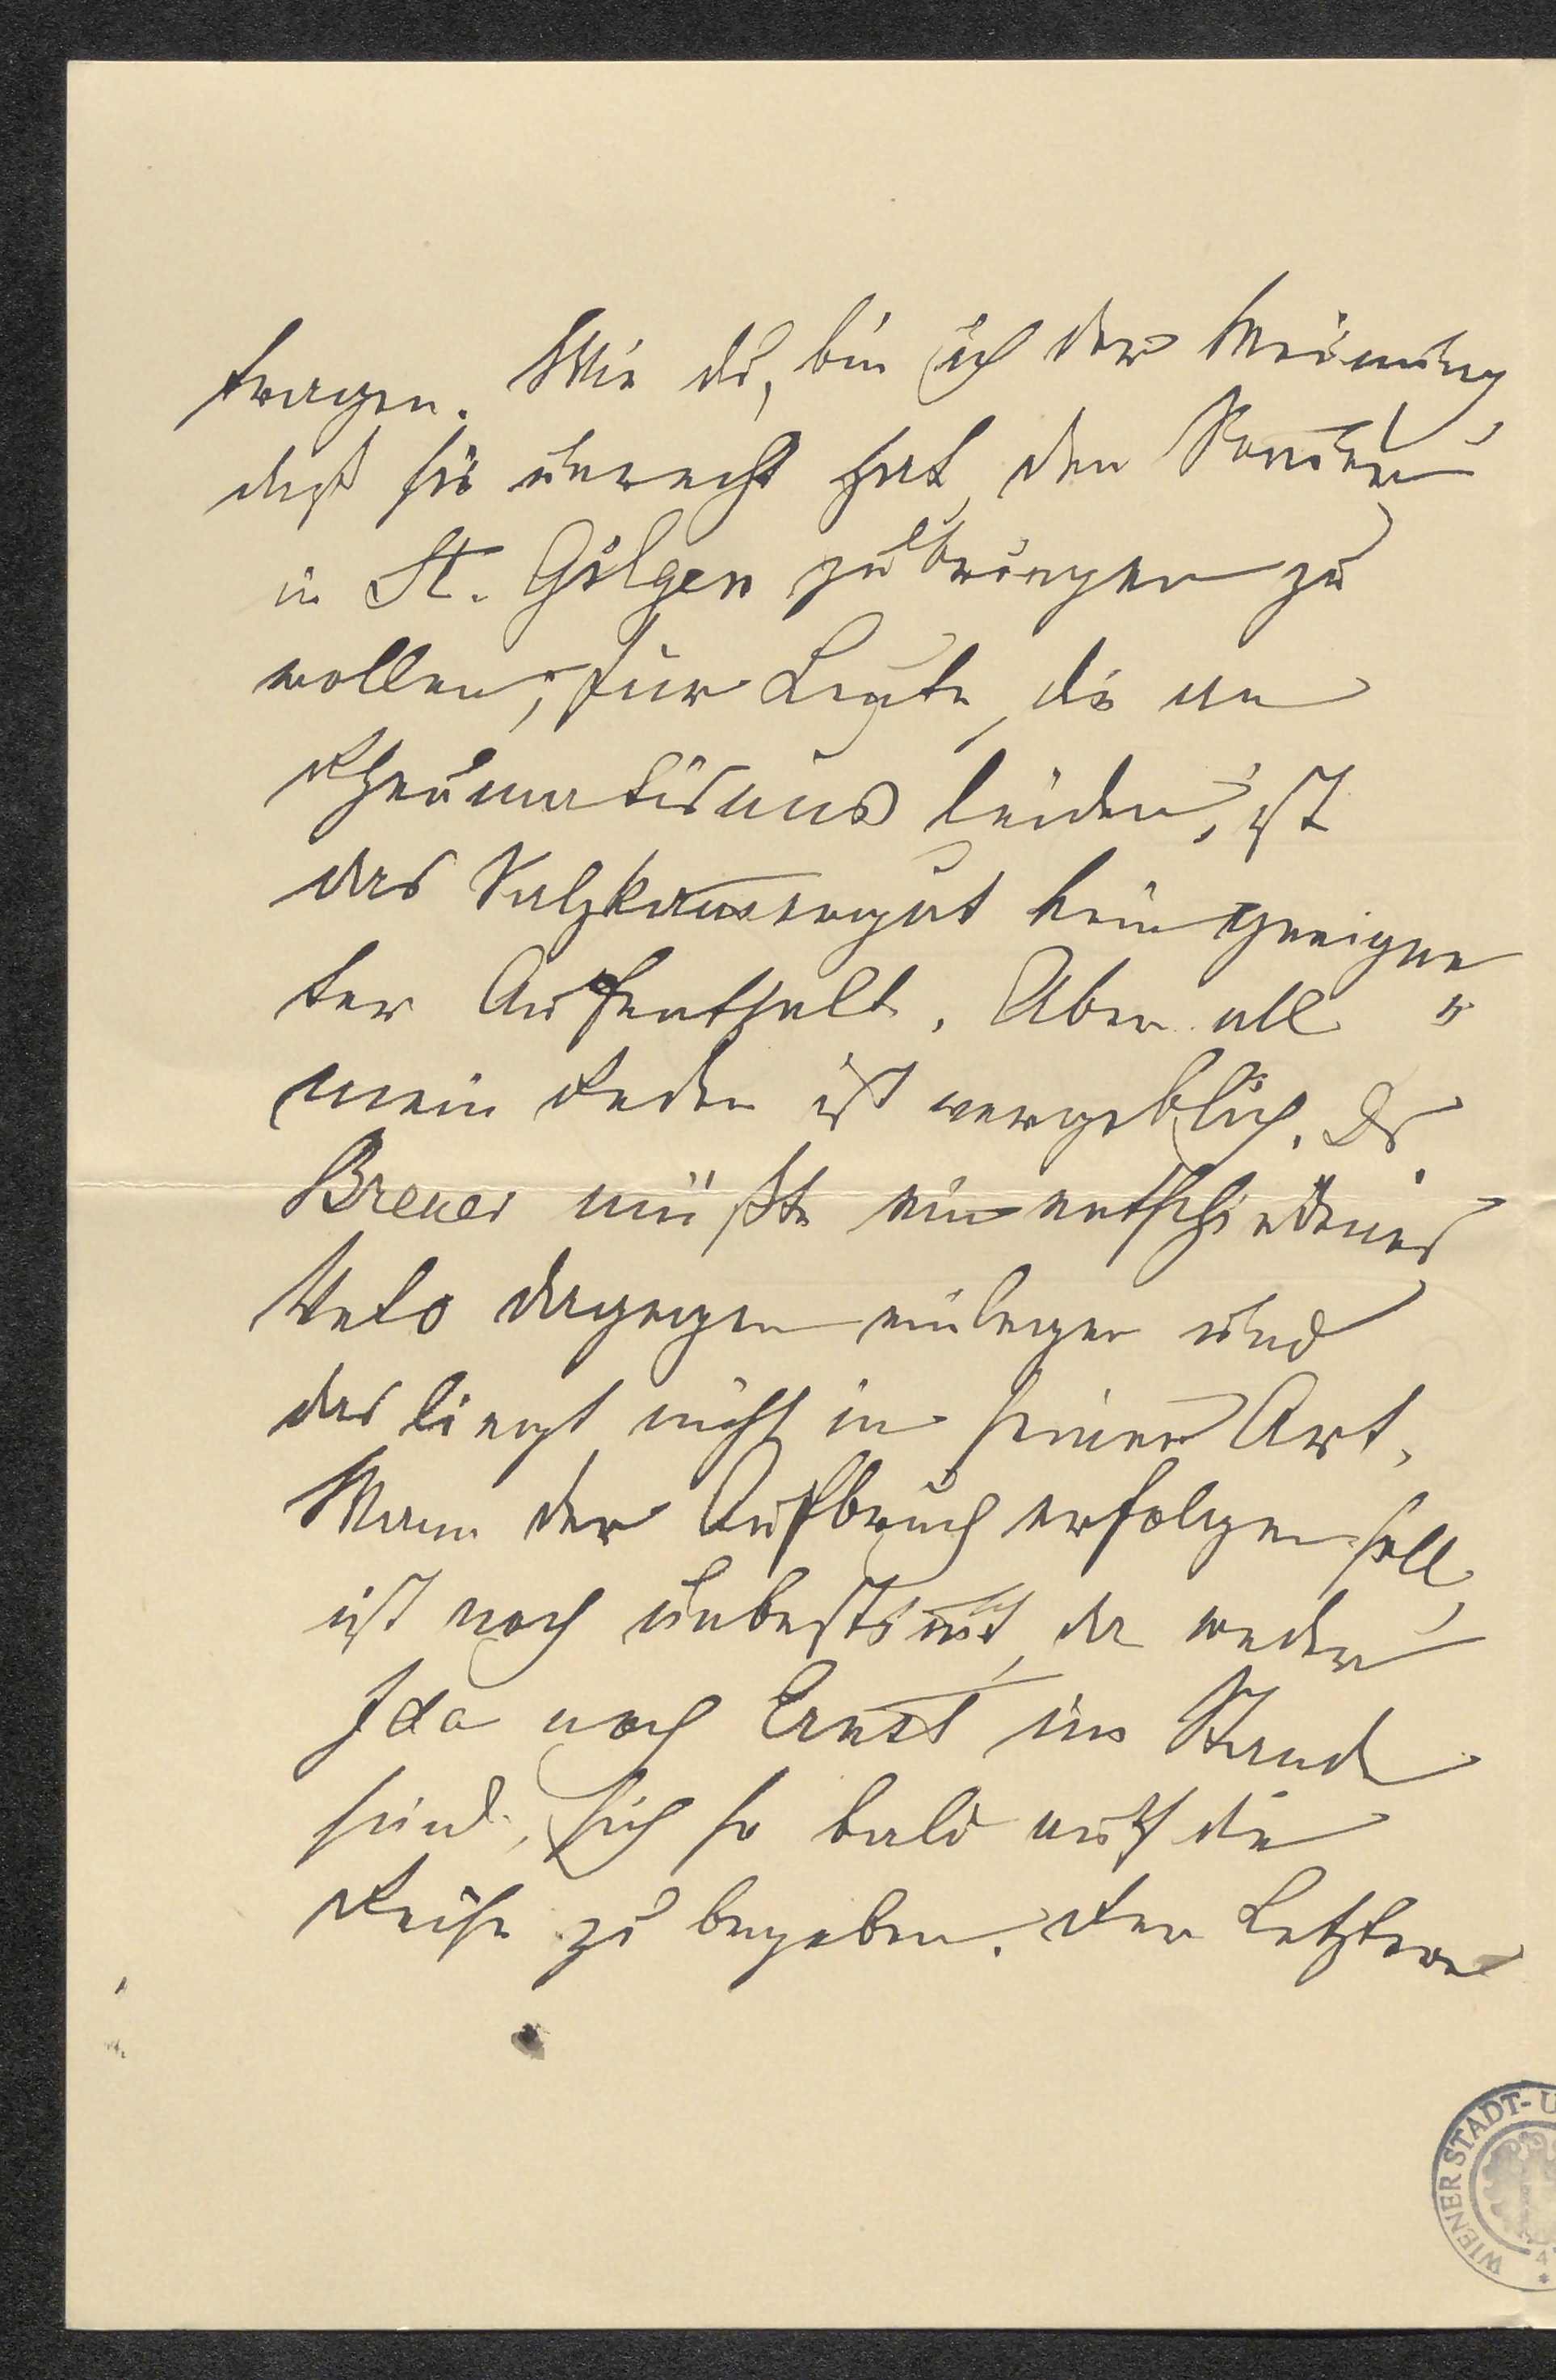 tragen. Wie du, bin ich der Meinung,
daß sie unrecht hat, den Som̅er
in St. Gilgen zubringen zu
wollen; für Leute, die an
Rheumatismus leiden, ist
das Salzkam̅ergut kein geeigne
ter Aufenthalt. Aber all "
mein Reden ist vergeblich. Dr.
Breuer müßte ein entschiedenes
Veto dagegen einlegen und
das liegt nicht in seiner Art.
Wann der Aufbruch erfolgen soll,
ist noch unbestim̅t, da weder
Ida noch Ernst im Stande
sind, sich so bald auf die
Reise zu begeben. Der Letztere
WIENER STADT- U